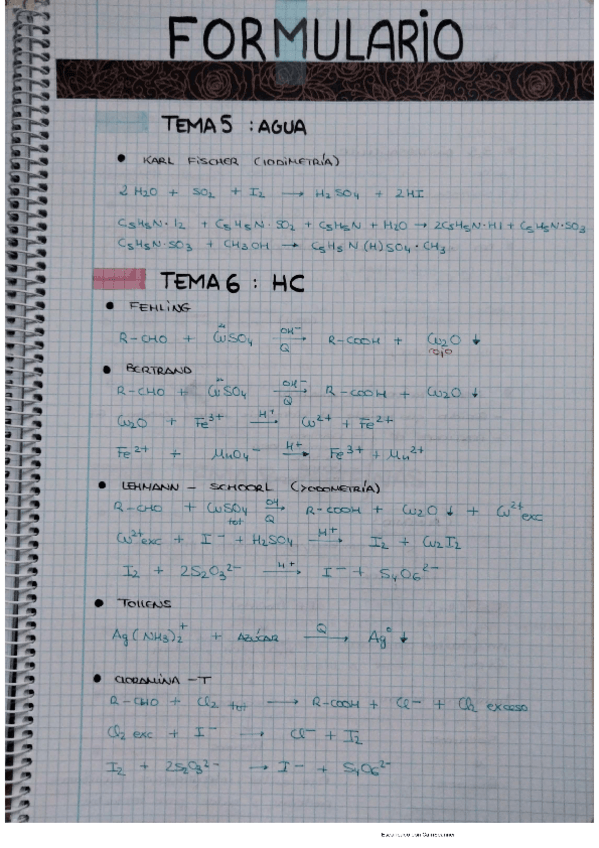 FORMULARIO
TEMA 5 : AGUA
• KARL FISCHER (IODIMETRÍA)
2 H2O + SO2 + I2 → H2SO4 + 2HI
C5H5N·I2 + C5H5N·SO2 + C5H5N + H2O → 2C5H5N·HI + C5H5N·SO3
C5H5N·SO3 + CH3OH → C5H5N(H)SO4·CH3
TEMA 6 : HC
• FEHLING
R-CHO + CuSO4 OH⁻ → Q R-COOH + Cu2O ↓
rojo
• BERTRAND
R-CHO + CuSO4 OH⁻ → Q R-COOH + Cu2O ↓
Cu2O + Fe³⁺ H⁺ → Cu²⁺ + Fe²⁺
Fe²⁺ + MnO4⁻ H⁺ → Fe³⁺ + Mn²⁺
• LEHMANN - SCHOORL (YODOMETRÍA)
R-CHO + CuSO4 tot OH → Q R-COOH + Cu2O ↓ + Cu²⁺ exc
Cu²⁺ exc + I⁻ + H2SO4 H⁺ → I2 + Cu2I2
I2 + 2S2O3²⁻ H⁺ → I⁻ + S4O6²⁻
• TOLLENS
Ag(NH3)2⁺ + AZÚCAR Q → Ag⁰ ↓
• CLORAMINA -T
R-CHO + Cl2 tot → R-COOH + Cl⁻ + Cl2 exceso
Cl2 exc + I⁻ → Cl⁻ + I2
I2 + 2S2O3²⁻ → I⁻ + S4O6²⁻